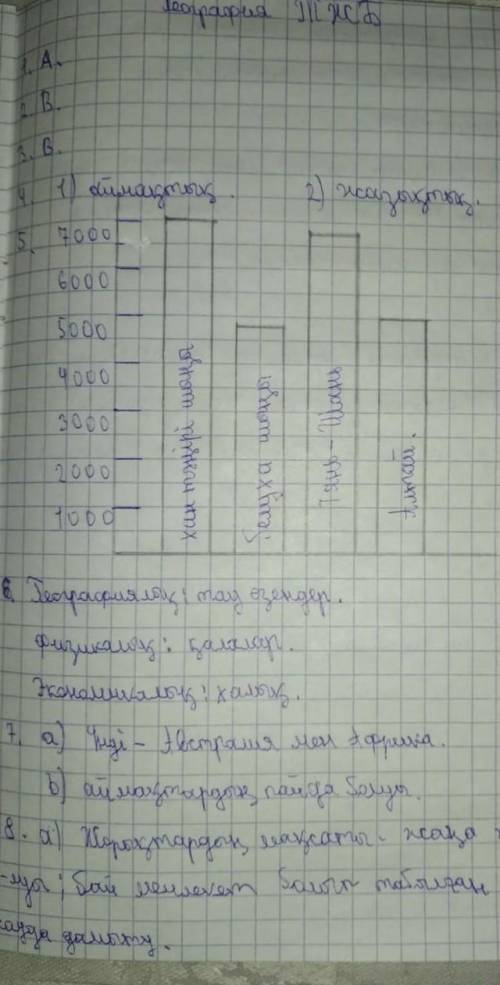 География ТЖБ
1. А.
2. В.
3. В.
4. 1) аймақтық. 2) жазықтық.
5. 7000
6000
5000
4000
3000
2000
1000
Тянь - Шань
6. Географиялық: тау өзендер.
Физикалық: қалалар.
Экономикалық: халық.
7. а) Үнді - Австралия мен Африка.
b) аймақтардың пайда болуы.
8. а) Жорықтардың мақсаты - жаңа
бай мемлекет болып табылған
сауда дамыту.